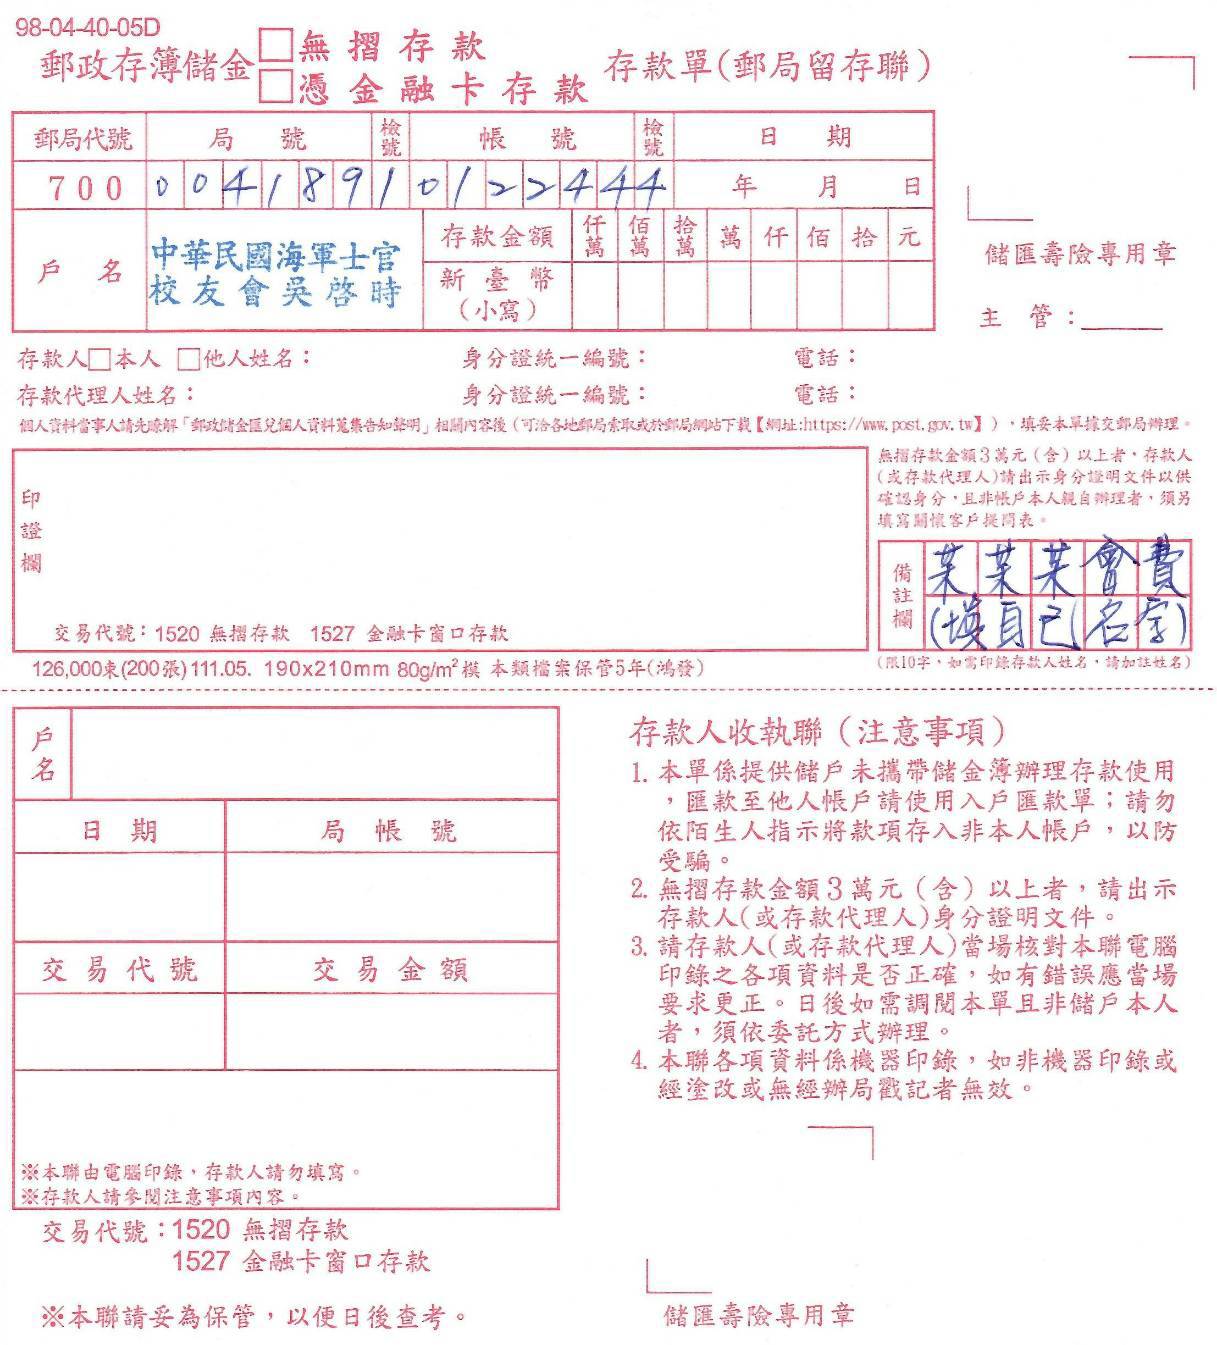 98-04-40-05D
郵政存簿儲金 □無摺存款 □憑金融卡存款 存款單(郵局留存聯)
郵局代號 局號 檢號 帳號 檢號 日期
700 0041891 0122444 年 月 日
戶名 中華民國海軍士官
校友會吳啓時
存款金額 仟萬 佰萬 拾萬 萬 仟 佰 拾 元
新臺幣
(小寫)
儲匯壽險專用章
主管:
存款人□本人 □他人姓名: 身分證統一編號: 電話:
存款代理人姓名: 身分證統一編號: 電話:
個人資料當事人請先瞭解「郵政儲金匯兌個人資料蒐集告知聲明」相關內容後(可洽各地郵局索取或於郵局網站下載【網址:https://www.post.gov.tw】),填妥本單據交郵局辦理。
印證欄
交易代號:1520 無摺存款 1527 金融卡窗口存款
無摺存款金額3萬元(含)以上者,存款人
(或存款代理人)請出示身分證明文件以供
確認身分,且非帳戶本人親自辦理者,須另
填寫關懷客戶提問表。
備註欄 某某某會費
(填自己名字)
(限10字,如需印錄存款人姓名,請加註姓名)
126,000束(200張)111.05. 190x210mm 80g/m²模 本類檔案保管5年(鴻發)
戶名
日期 局帳號
交易代號 交易金額
※本聯由電腦印錄,存款人請勿填寫。
※存款人請參閱注意事項內容。
交易代號:1520 無摺存款
1527 金融卡窗口存款
※本聯請妥為保管,以便日後查考。
存款人收執聯(注意事項)
1. 本單係提供儲戶未攜帶儲金簿辦理存款使用
,匯款至他人帳戶請使用入戶匯款單;請勿
依陌生人指示將款項存入非本人帳戶,以防
受騙。
2. 無摺存款金額3萬元(含)以上者,請出示
存款人(或存款代理人)身分證明文件。
3. 請存款人(或存款代理人)當場核對本聯電腦
印錄之各項資料是否正確,如有錯誤應當場
要求更正。日後如需調閱本單且非儲戶本人
者,須依委託方式辦理。
4. 本聯各項資料係機器印錄,如非機器印錄或
經塗改或無經辦局戳記者無效。
儲匯壽險專用章